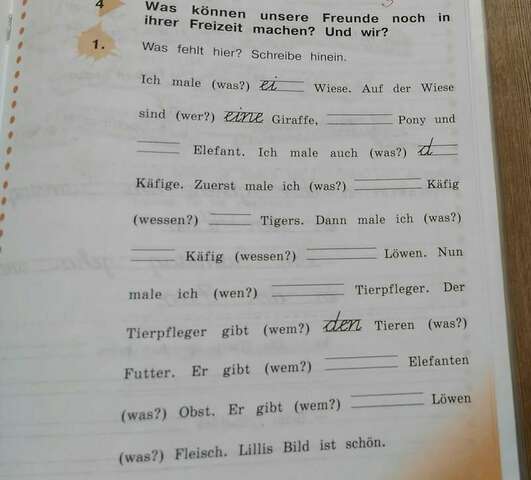 4
Was können unsere Freunde noch in
ihrer Freizeit machen? Und wir?
1.
Was fehlt hier? Schreibe hinein.
Ich male (was?) ei Wiese. Auf der Wiese
sind (wer?) eine Giraffe, Pony und
Elefant. Ich male auch (was?) d
Käfige. Zuerst male ich (was?) Käfig
(wessen?) Tigers. Dann male ich (was?)
Käfig (wessen?) Löwen. Nun
male ich (wen?) Tierpfleger. Der
Tierpfleger gibt (wem?) den Tieren (was?)
Futter. Er gibt (wem?) Elefanten
(was?) Obst. Er gibt (wem?) Löwen
(was?) Fleisch. Lillis Bild ist schön.